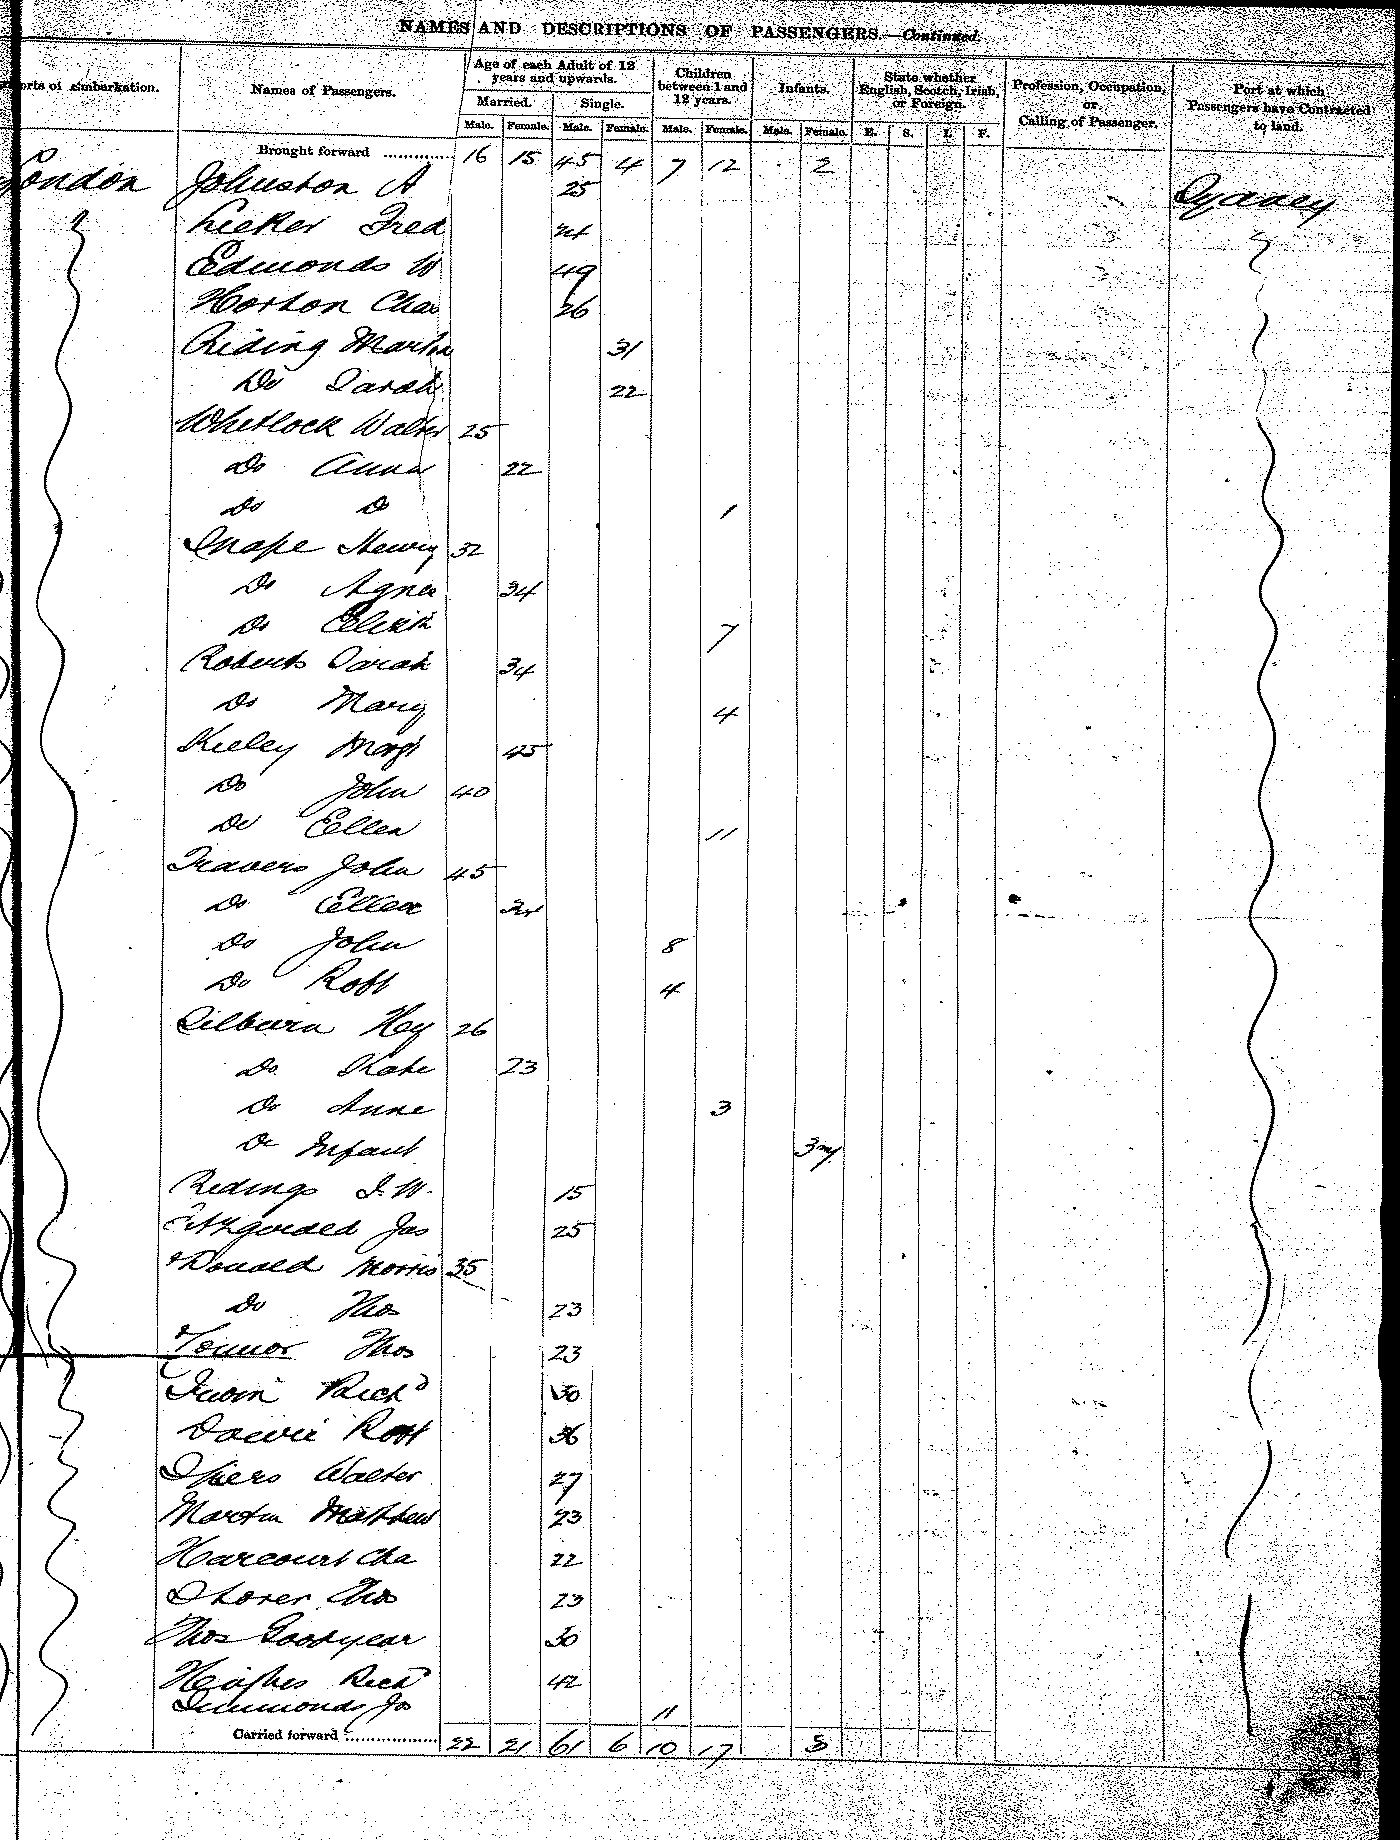 NAMES AND DESCRIPTIONS OF PASSENGERS.—Continued.
Ports of Embarkation. Names of Passengers. Age of each Adult of 12 years and upwards. Children between 1 and 12 years. Infants. State whether English, Scotch, Irish, or Foreign. Profession, Occupation, or Calling of Passenger. Port at which Passengers have Contracted to land.
Married. Single.
Male. Female. Male. Female. Male. Female. Male. Female. E. S. I. F.
Brought forward 16 15 45 4 7 12 2
London Johnston A 25 Sydney
" Fred 24
Edmonds W 49
Horton Chas 26
Riding Martha 31
Do Sarah 22
Whitlock Walter 25
Do Anna 22
Do Do 1
Snape Henry 32
Do Agnes 34
Do Elizth 7
Roberts Sarah 34
Do Mary 4
Kieley Margt 45
Do John 40
Do Ellen 11
Travers John 45
Do Ellen
Do John 8
Do Robt 4
Silburn Hy 26
Do Kate 23
Do Anne 3
Do Infant 3 m/
Ridings J. W. 15
Fitzgerald Jas 25
Donald Morris 35
Do Thos 23
Connor Thos 23
Irwin Richd 30
Dowie Robt 36
Spiers Walter 27
Martin Matthew 23
Harcourt Cha 22
Storer Tho 23
Thos Goodyear 30
Hughes Richd 42
Simmonds Jo 11
Carried forward 22 21 61 6 10 17 3